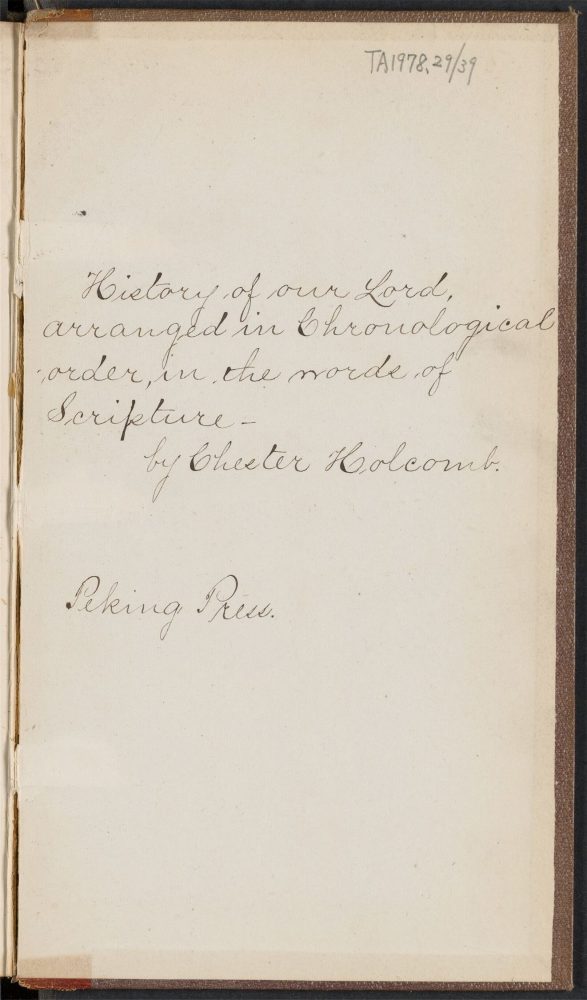 TA1978.29/39
History of our Lord,
arranged in Chronological
order, in the words of
Scripture -
by Chester Holcomb.
Peking Press.